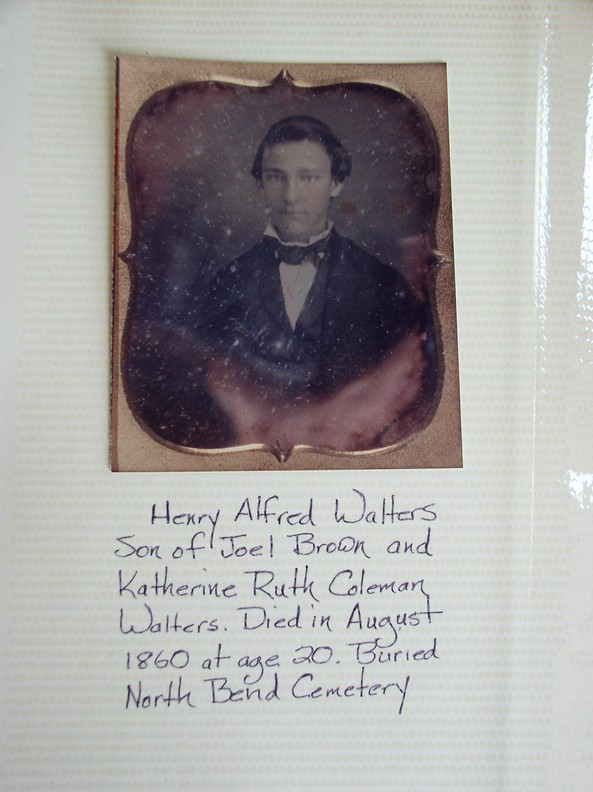 Henry Alfred Walters
Son of Joel Brown and
Katherine Ruth Coleman
Walters. Died in August
1860 at age 20. Buried
North Bend Cemetery